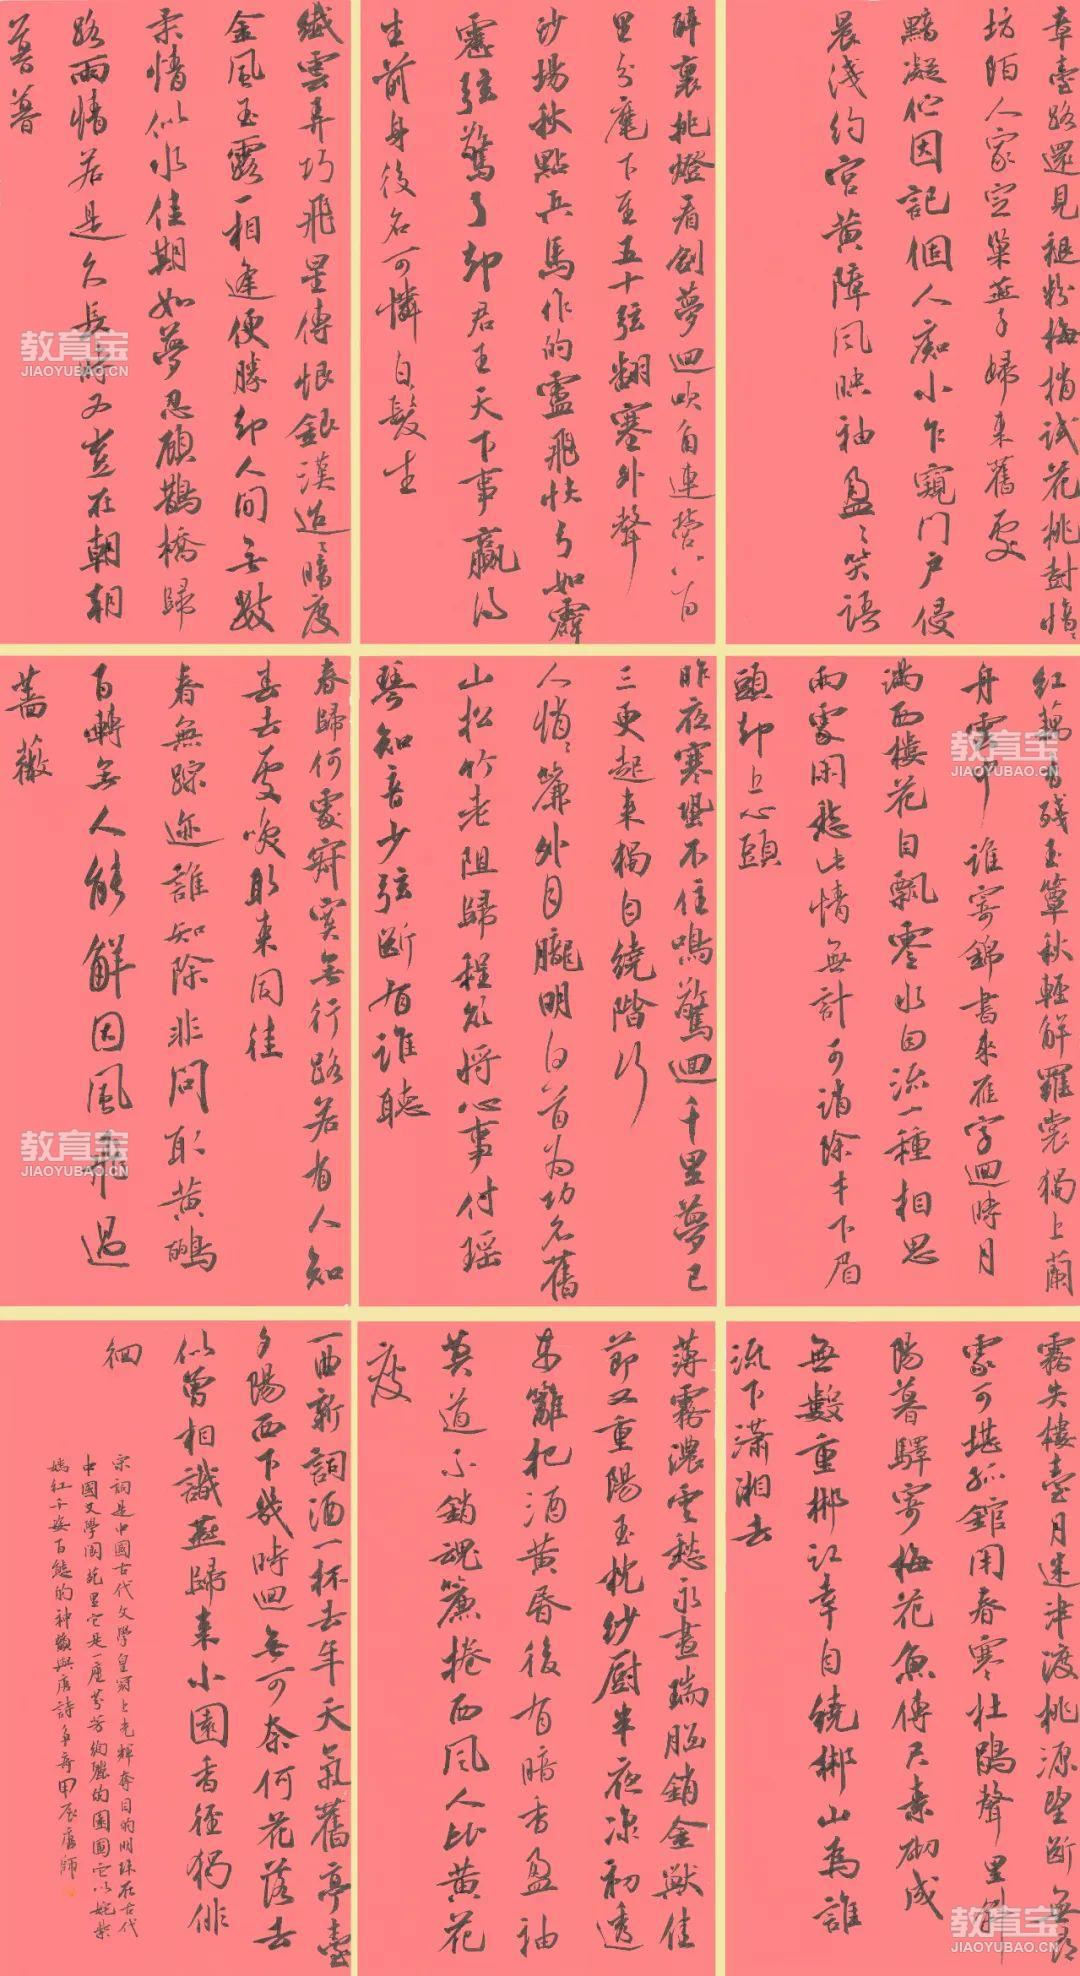 章臺路還見褪粉梅梢試花桃樹愔愔
坊陌人家定巢燕子歸來舊處
黯凝佇因記個人痴小乍窺門戶侵
晨淺約宮黃障風映袖盈盈笑語
醉裏挑燈看劍夢迴吹角連營八百
里分麾下炙五十弦翻塞外聲
沙場秋點兵馬作的盧飛快弓如霹
靂弦驚了卻君王天下事贏得
生前身後名可憐白髮生
纖雲弄巧飛星傳恨銀漢迢迢暗度
金風玉露一相逢便勝卻人間無數
柔情似水佳期如夢忍顧鵲橋歸
路兩情若是久長時又豈在朝朝
暮暮
紅藕香殘玉簟秋輕解羅裳獨上蘭
舟雲中誰寄錦書來雁字迴時月
滿西樓花自飄零水自流一種相思
兩處閑愁此情無計可消除才下眉
頭卻上心頭
昨夜寒蛩不住鳴驚迴千里夢已
三更起來獨自繞階行
人悄悄簾外月朧明白首為功名舊
山松竹老阻歸程欲將心事付瑶
琴知音少弦斷有誰聽
春歸何處寂寞無行路若有人知
春去處喚取來同住
春無踪迹誰知除非問取黃鸝
百囀無人能解因風飛過
薔薇
霧失樓臺月迷津渡桃源望斷無尋
處可堪孤館閉春寒杜鵑聲里斜
陽暮驛寄梅花魚傳尺素砌成
無數重郴江幸自繞郴山為誰
流下瀟湘去
薄霧濃雲愁永晝瑞腦銷金獸佳
節又重陽玉枕紗厨半夜凉初透
东籬把酒黃昏後有暗香盈袖
莫道不銷魂簾捲西風人比黃花
瘦
一曲新詞酒一杯去年天氣舊亭臺
夕陽西下幾時迴無可奈何花落去
似曾相識燕歸來小園香徑獨徘
徊
宋詞是中國古代文學皇冠上光輝奪目的明珠在古代
中國文學閣苑里它是一座芬芳絢麗的園圃它以姹紫
嫣红千姿百態的神韻與唐詩爭奇甲辰唐師
教育宝
JIAOYUBAO.CN
教育宝
JIAOYUBAO.CN
教育宝
JIAOYUBAO.CN
教育宝
JIAOYUBAO.CN